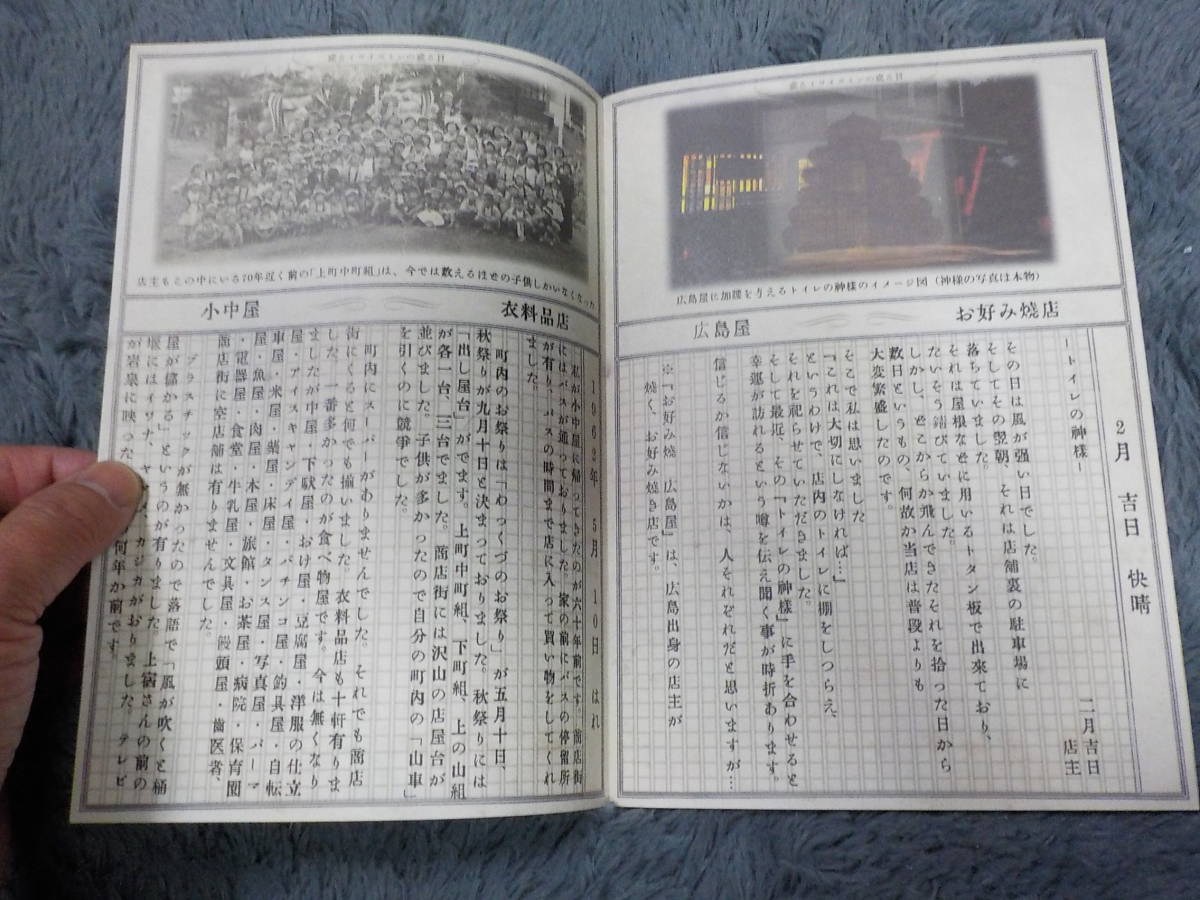 広島屋に加護を与えるトイレの神様のイメージ図(神様の写真は本物)
お好み焼店
広島屋
2月 吉日 快晴
二月吉日
店主
-トイレの神様-
その日は風が強い日でした。
そしてその翌朝、それは店舗裏の駐車場に
落ちていました。
それは屋根などに用いるトタン板で出来ており、
たいそう錆びていました。
しかし、どこからか飛んできたそれを拾った日から
数日というもの、何故か当店は普段よりも
大変繁盛したのです。
そこで私は思いました
「これは大切にしなければ…」
というわけで、店内のトイレに棚をしつらえ、
それを祀らせていただきました。
そして最近、その「トイレの神様」に手を合わせると
幸運が訪れるという噂を伝え聞く事が時折あります。
信じるか信じないかは、人それぞれだと思いますが…
※「お好み焼 広島屋」は、広島出身の店主が
焼く、お好み焼き店です。
店主もこの中にいる70年近く前の「上町中町組」は、今では数えるほどの子供しかいなくなった
衣料品店
小中屋
1962年 5月 10日 はれ
私が小中屋に帰ってきたのが六十年前です。商店街
にはバスが通っておりました。家の前にバスの停留所
が有り、バスの時間まで店に入って買い物をしてくれ
ました。
町内のお祭りは「わっくづのお祭り」が五月十日、
秋祭りが九月十日と決まっておりました。秋祭りには
「出し屋台」がでます。上町中町組、下町組、上の山組
が各一台、三台でました。商店街には沢山の店屋台が
並びました。子供が多かったので自分の町内の「山車」
を引くのに競争でした。
町内にスーパーがありませんでした。それでも商店
街にくると何でも揃いました。衣料品店も十軒有りま
した。一番多かったのが食べ物屋です。今は無くなり
ましたが中屋・下駄屋・おけ屋・豆腐屋・洋服の仕立
屋・アイスキャンデイ屋・パチンコ屋・釣具屋・自転
車屋・米屋・薬屋・床屋・タンス屋・写真屋・パーマ
屋・魚屋・肉屋・本屋・旅館・お茶屋・病院・保育園
・電器屋・食堂・牛乳屋・文具屋・饅頭屋・歯医者、
商店街に空店舗は有りませんでした。
プラスチックが無かったので落語で「風が吹くと桶
屋が儲かる」というのが有りました。上宿さんの前の
堰にはイワナ、ヤマメ、カジカがおりました。テレビ
が岩泉に映った 何年か前です。